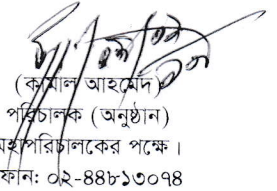 (কামাল আহমেদ)
পরিচালক (অনুষ্ঠান)
মহাপরিচালকের পক্ষে।
ফোন: ০২-৪৪৮১৩০৭৪